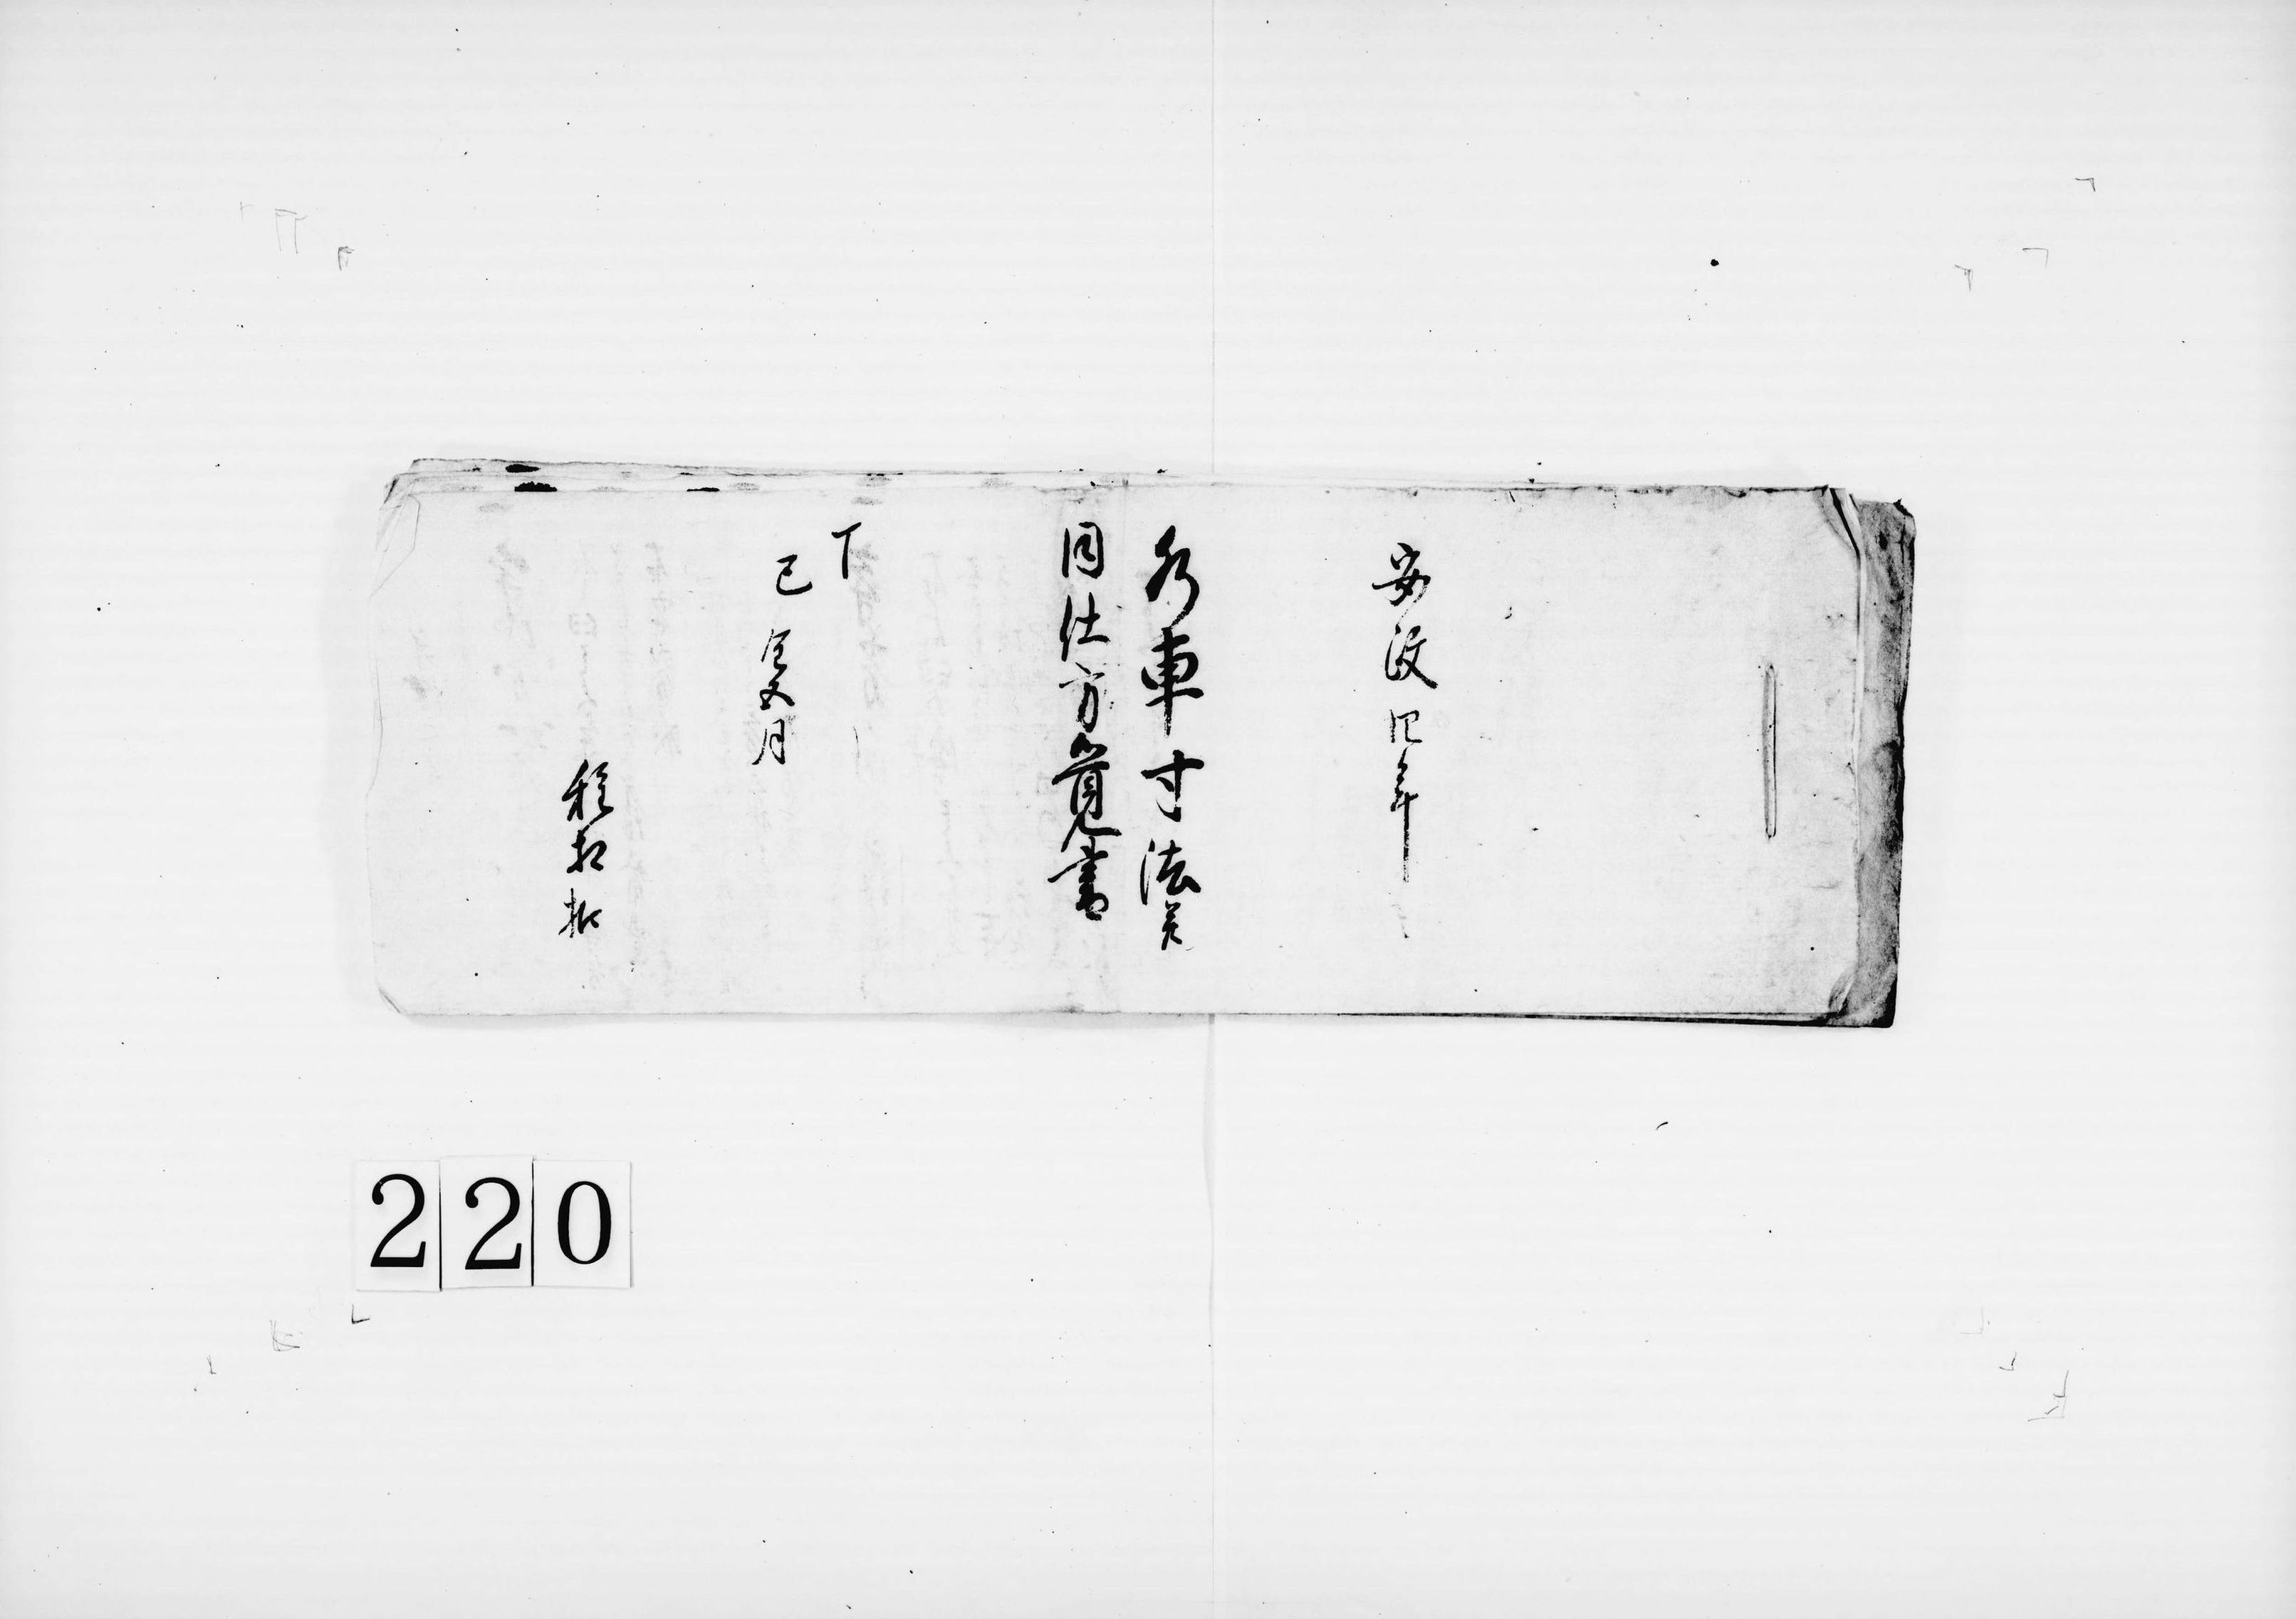 安政四年
水車寸法並
同仕方覚書
丁
巳 閏五月
220